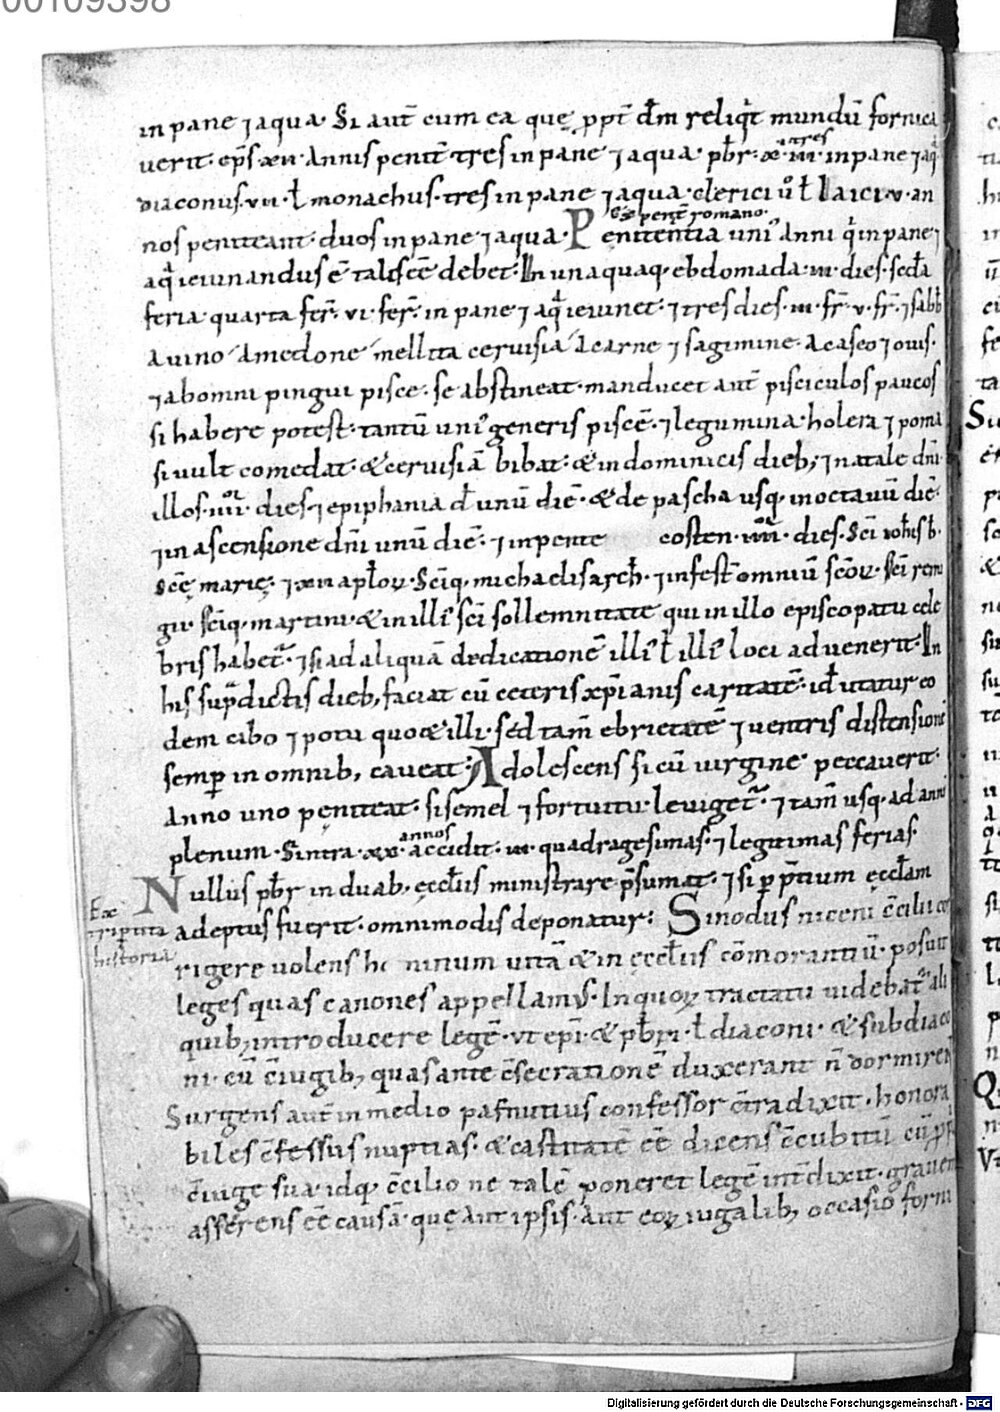 00109398
in pane ⁊ aqua· Si aut̄ cum ea que ꝓpt̄ dm̄ reliq̄t mundū fornica
uerit· ep̄s xii· annis penit̄ tres in pane ⁊ aqua· pb̄r· x· iii· tres in pane ⁊ aq̄
diaconus· vii· ł monachus· tres in pane ⁊ aqua· clerici ů ł laici· v· an
nos peniteant· duos in pane ⁊ aqua· Penitentia uni᾽ anni q̄ in pane ⁊
penit̄ romano·
aq̄ ieiunandus ē talis eē debet· In unaquaq, ebdomada· iii· dies· secd̄a
feria quarta fer̄· vi· fer̄· in pane ⁊ aq̄ ieiunet· ⁊ tres dies· iii· fr̄· v· fr̄· ⁊ sabb̄
a uino a medone mellita ceruisia a carne ⁊ sagimine a caseo ⁊ ouis·
⁊ ab omni pingui pisce· se abstineat· manducet aut̄ pisciculos paucos
si habere potest· tantū uni᾽ generis piscē· ⁊ legumina· holera ⁊ poma
si uult comedat· & ceruisiā bibat· & in dominicis dieb; in natale dn̄i
illos· iiii· dies· ⁊ epiphania d̄ unū diē· & de pascha usq, in octauū diē·
⁊ in ascensione dn̄i unū diē· ⁊ in pente costen· iiii· dies· Sc̄i ioh̄is b·
Sc̄ę marię· ⁊ xii apłoꝝ· Sc̄iq, michaelis arch̄· ⁊ in fest̄ omniū sc̄oꝝ· Sc̄i remi
gii· Sc̄iq, martini· & in illi᾽ sc̄i sollemnitate qui in illo episcopatu cele
bris habet᾽· ⁊ si ad aliquā dedicationē illi᾽ ł illi᾽ loci aduenerit· In
his sup̄dictis dieb, faciat cū ceteris xp̄ianis caritatē· id̄ utatur eo
dem cibo ⁊ potu quo & illi· sed tam̄ ebrietatē ⁊ uentris distensionē
semp̄ in omnib, caueat· Adolescens si cū uirgine peccauerit·
Anno uno peniteat· si semel ⁊ fortuitu leuiget᾽· ⁊ tam̄ usq, ad anni
plenum· Si intra· xx· annos accidit· iii· quadragesimas· ⁊ legitimas ferias·
Nullus pb̄r in duab, ęccl̄iis ministrare p̄sumat· ⁊ si ꝑ p̄tium ęccl̄am
adeptus fuerit· omnimodis deponatur· Sinodus niceni c̄cilii co
Ex
tripertita
historia
rigere uolens ho minum uitā & in ęccl̄iis cōmorantiū· posuit
leges quas canones appellam᾽· In quoꝝ tractatu uidebat᾽ ali
quib; introducere legē· ut ep̄i & pb̄ri· ł diaconi· & subdiaco
ni· cū c̄iugib; quas ante c̄secrationē duxerant n̄ dormirent
Surgens aut̄ in medio pafnutius confessor c̄tradixit· honora
biles c̄fessus nuptias· & castitatē eē dicens c̄cubitū cū ꝓp̄
c̄iuge sua· idq, c̄cilio ne talē poneret legē int̄dixit· grauem
asserens eē causā· quę aut ipsis· aut eoꝝ iugalib; occasio forni
Digitalisierung gefördert durch die Deutsche Forschungsgemeinschaft - DFG